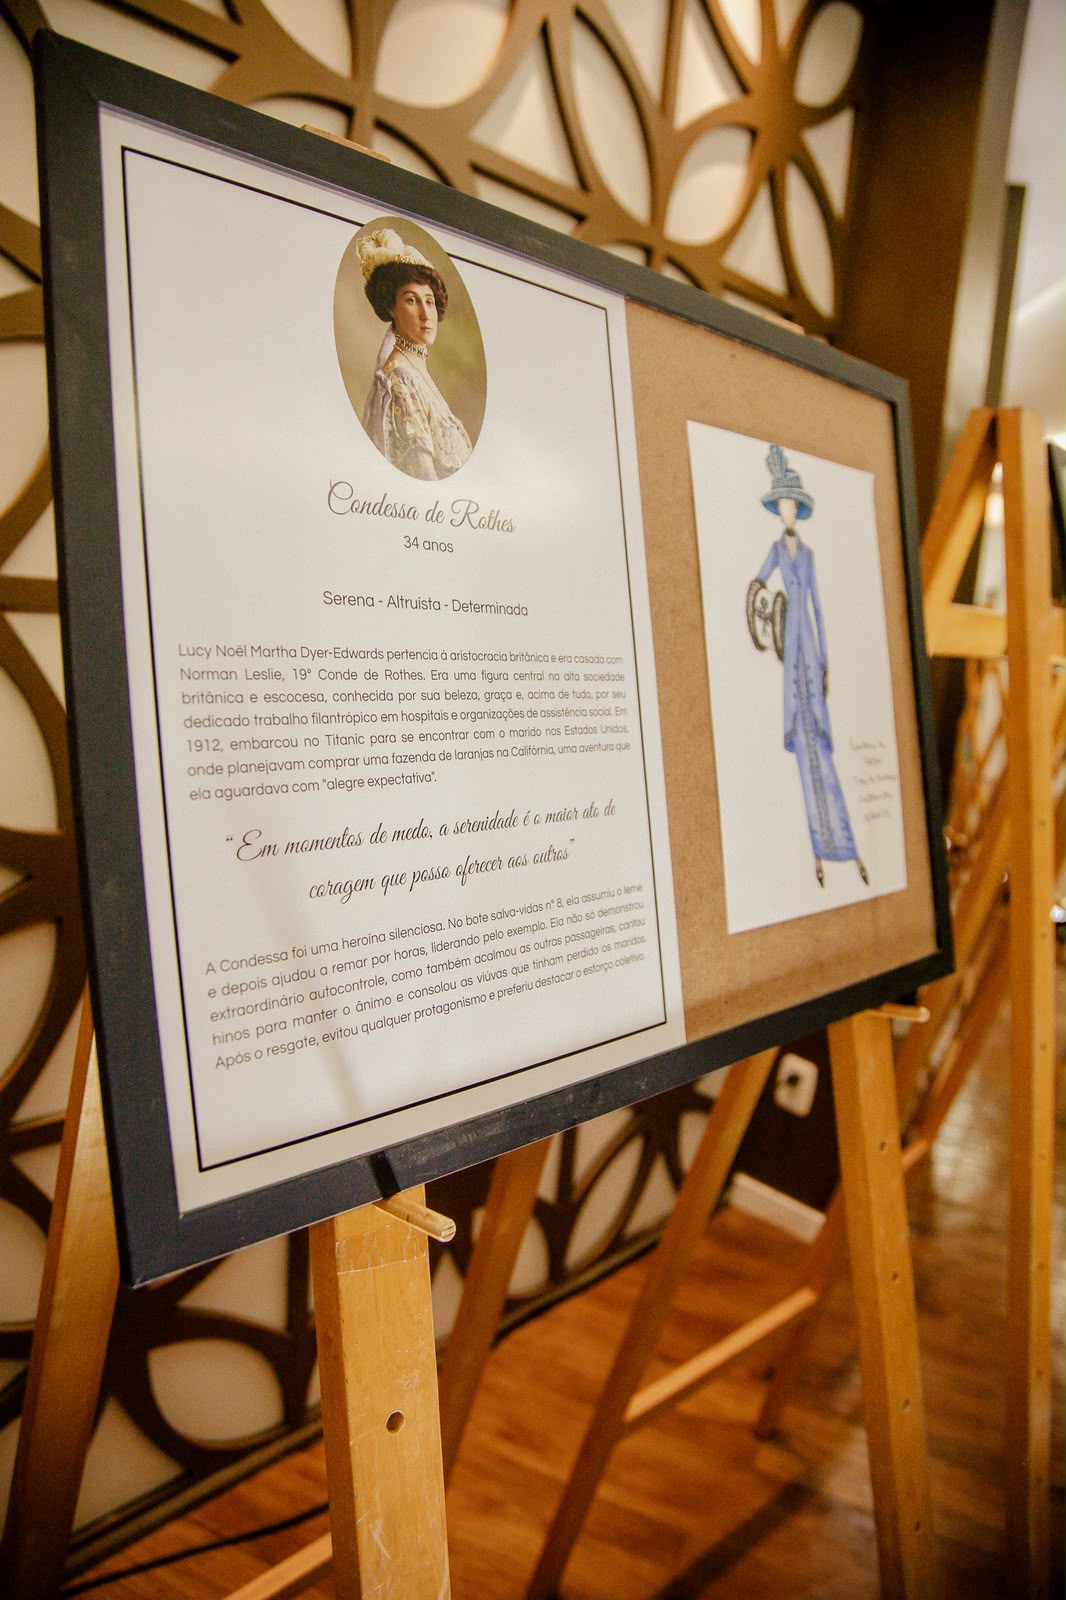 Condessa de Rothes
34 anos
Serena - Altruísta - Determinada
Lucy Noël Martha Dyer-Edwards pertencia à aristocracia britânica e era casada com
Norman Leslie, 19º Conde de Rothes. Era uma figura central na alta sociedade
britânica e escocesa, conhecida por sua beleza, graça e, acima de tudo, por seu
dedicado trabalho filantrópico em hospitais e organizações de assistência social. Em
1912, embarcou no Titanic para se encontrar com o marido nos Estados Unidos,
onde planejavam comprar uma fazenda de laranjas na Califórnia, uma aventura que
ela aguardava com "alegre expectativa".
“Em momentos de medo, a serenidade é o maior ato de
coragem que posso oferecer aos outros”
A Condessa foi uma heroína silenciosa. No bote salva-vidas nº 8, ela assumiu o leme
e depois ajudou a remar por horas, liderando pelo exemplo. Ela não só demonstrou
extraordinário autocontrole, como também acalmou as outras passageiras, cantou
hinos para manter o ânimo e consolou as viúvas que tinham perdido os maridos.
Após o resgate, evitou qualquer protagonismo e preferiu destacar o esforço coletivo.